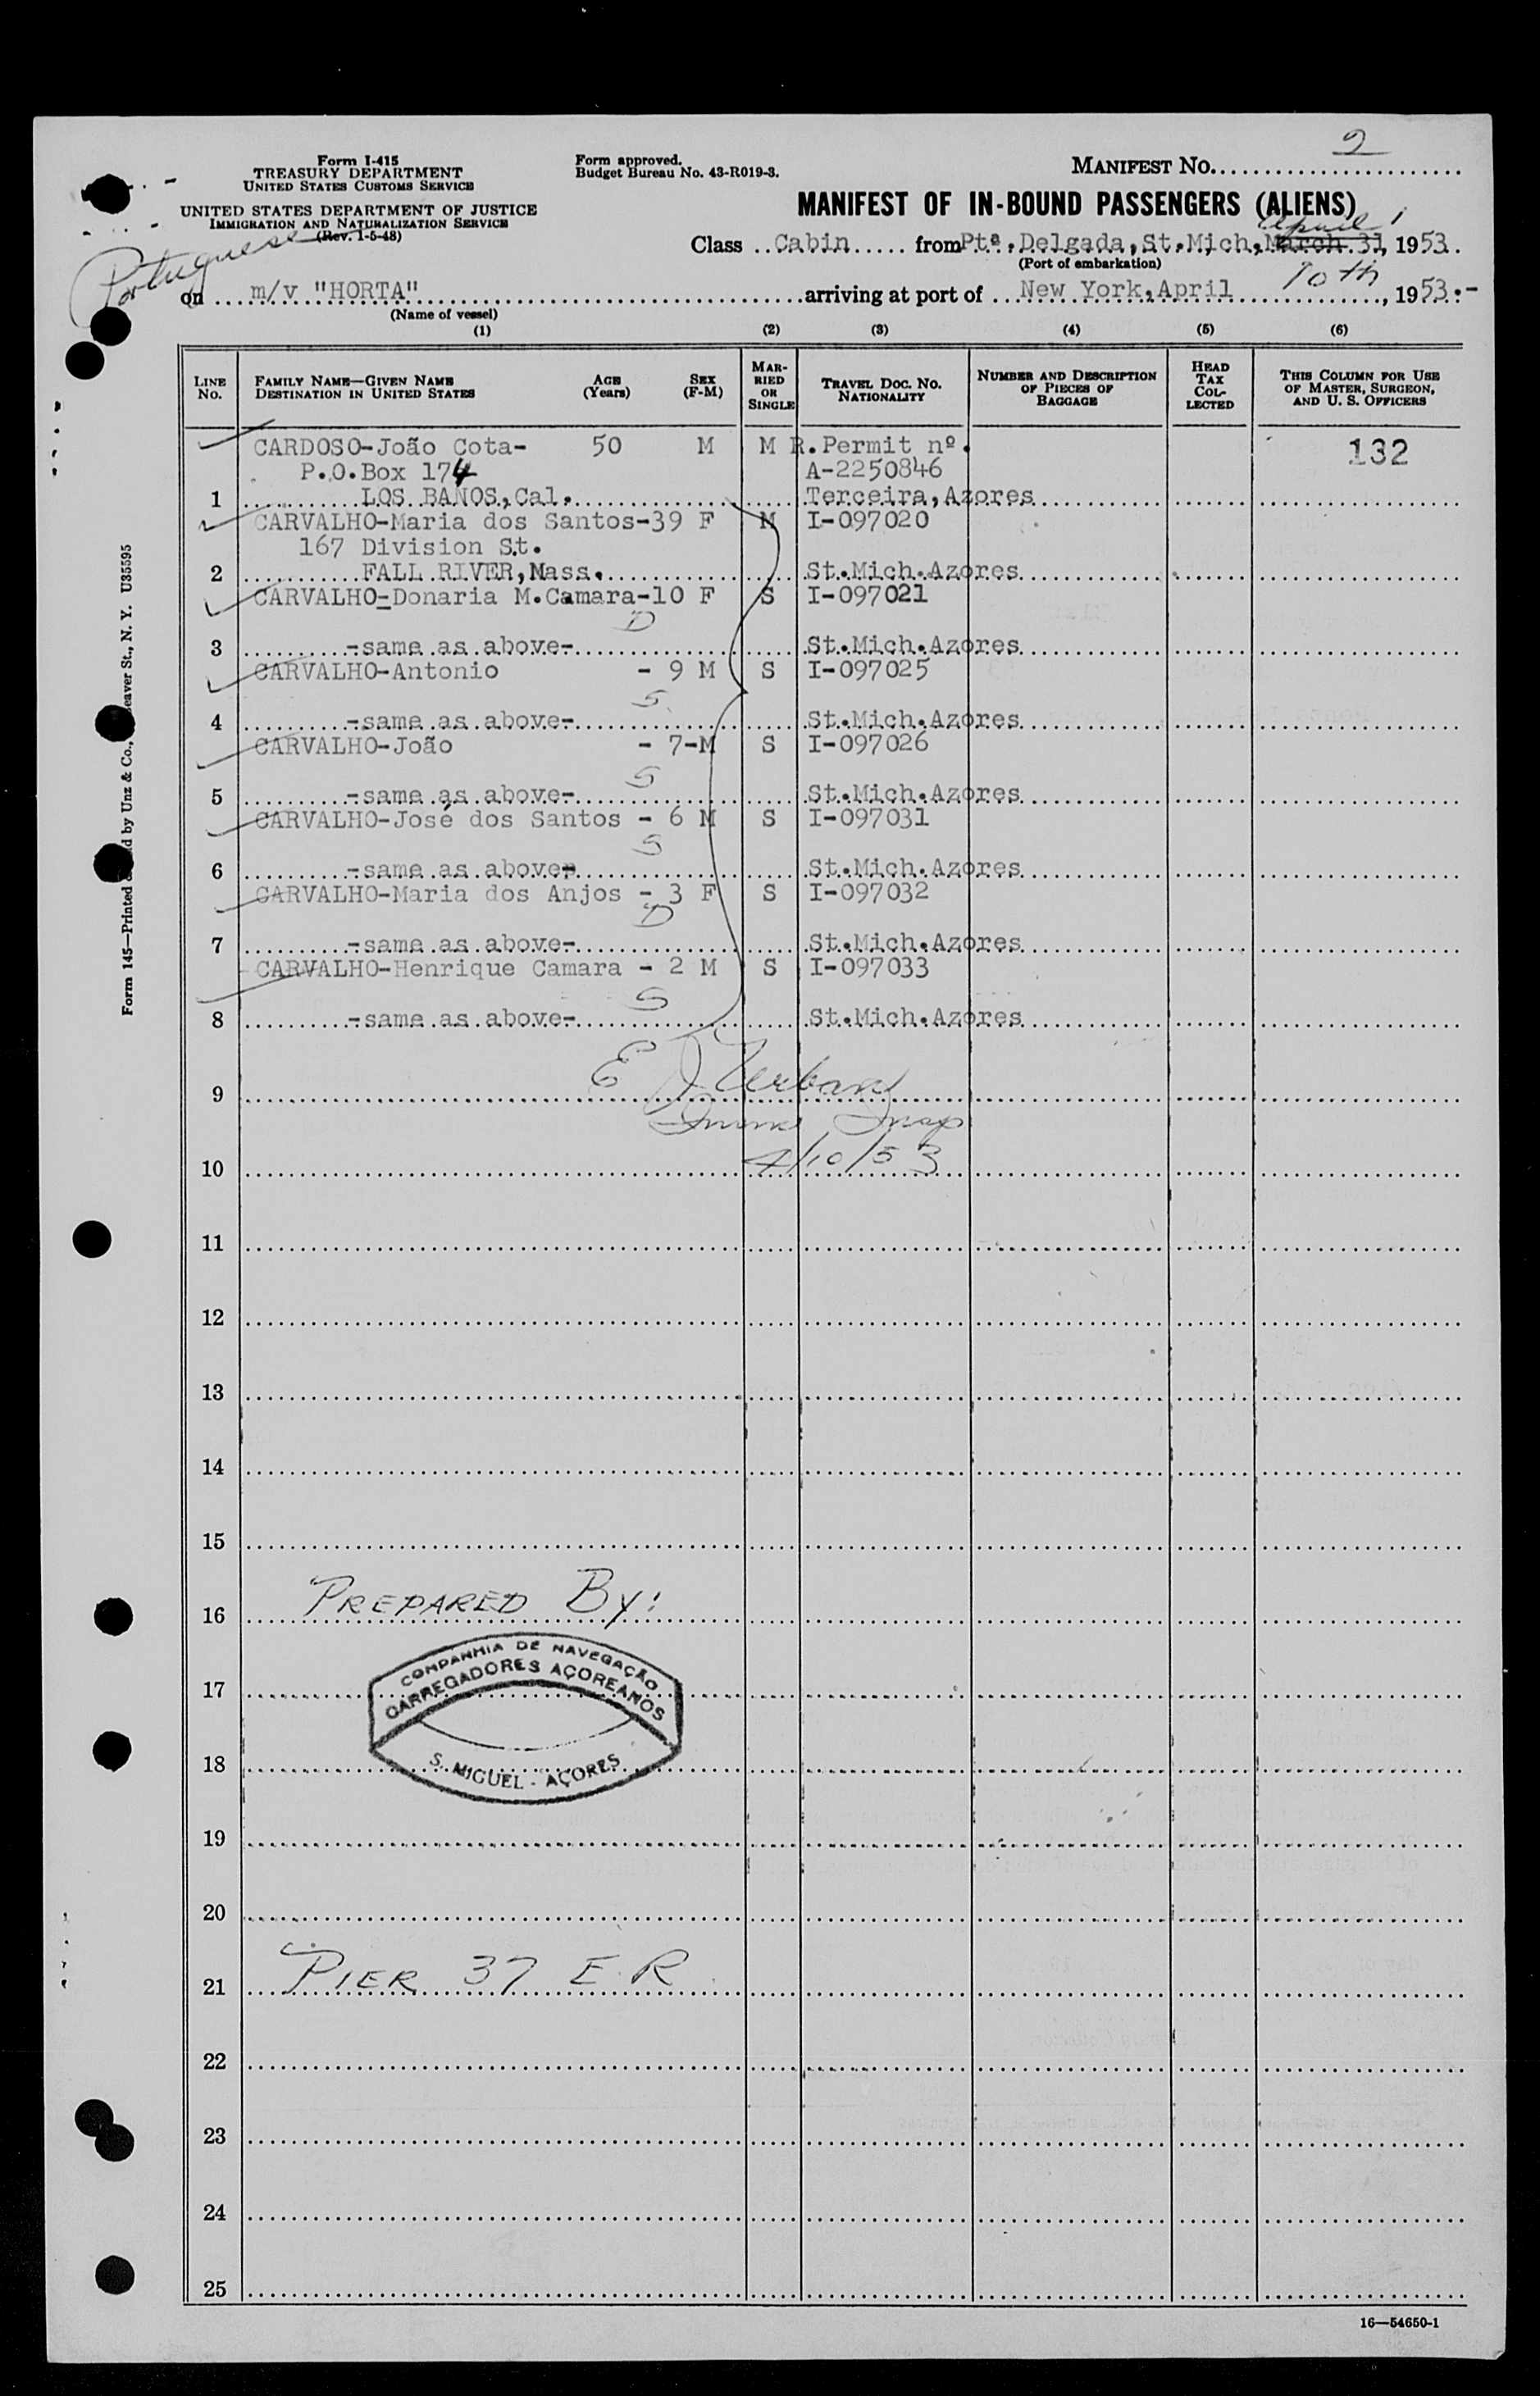 2
Form I-415
TREASURY DEPARTMENT
UNITED STATES CUSTOMS SERVICE
UNITED STATES DEPARTMENT OF JUSTICE
IMMIGRATION AND NATURALIZATION SERVICE
(Rev. 1-5-48)
Form approved.
Budget Bureau No. 43-R019-3.
MANIFEST NO.
MANIFEST OF IN-BOUND PASSENGERS (ALIENS)
Portuguese
April 1
Class Cabin from Ptª.Delgada,St.Mich,March 31, 1953.
(Port of embarkation)
on m/v "HORTA" arriving at port of New York,April 10th, 1953.-
(Name of vessel)
(1) (2) (3) (4) (5) (6)
LINE NO. FAMILY NAME—GIVEN NAME DESTINATION IN UNITED STATES AGE (Years) SEX (F-M) MARRIED OR SINGLE TRAVEL DOC. NO. NATIONALITY NUMBER AND DESCRIPTION OF PIECES OF BAGGAGE HEAD TAX COLLECTED THIS COLUMN FOR USE OF MASTER, SURGEON, AND U. S. OFFICERS
CARDOSO-João Cota- 50 M M R.Permit nº. 132
P.O.Box 174 A-2250846
1 LOS BANOS,Cal. Terceira,Azores
CARVALHO-Maria dos Santos-39 F M I-097020
167 Division St.
2 FALL RIVER,Mass. St.Mich.Azores
CARVALHO-Donaria M.Camara-10 F S I-097021
D
3 -same as above- St.Mich.Azores
CARVALHO-Antonio - 9 M S I-097025
S
4 -same as above- St.Mich.Azores
CARVALHO-João - 7-M S I-097026
S
5 -same as above- St.Mich.Azores
CARVALHO-José dos Santos - 6 M S I-097031
S
6 -same as above- St.Mich.Azores
CARVALHO-Maria dos Anjos - 3 F S I-097032
D
7 -same as above- St.Mich.Azores
CARVALHO-Henrique Camara - 2 M S I-097033
S
8 -same as above- St.Mich.Azores
E J Urban
9
Immi Insp
10 4/10/53
11
12
13
14
15
16 PREPARED BY:
COMPANHIA DE NAVEGAÇÃO
17 CARREGADORES AÇOREANOS
18 S. MIGUEL - AÇORES
19
20
21 PIER 37 E.R.
22
23
24
25
16—54650-1
Form 145—Printed d by Unz & Co., eaver St., N. Y. U35595